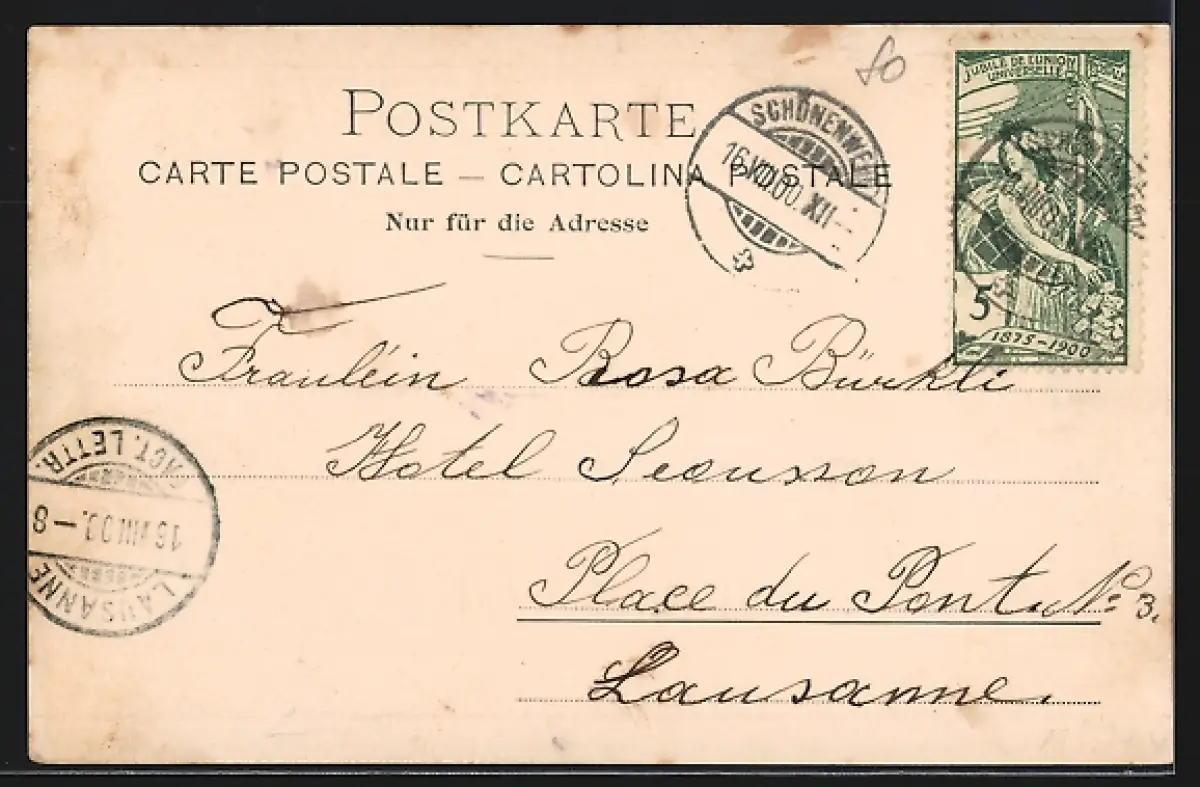 80
JUBILÉ DE L'UNION
UNIVERSELLE POSTALE
POSTKARTE
CARTE POSTALE – CARTOLINA POSTALE
Nur für die Adresse
SCHÖNENWERD
16.VIII.00.XII–
5
1875–1900
Fräulein Rosa Bürkli
Hotel
Place du Pont, No. 3.
Lausanne.
LAUSANNE
16.VIII.00.–8
LETTR.